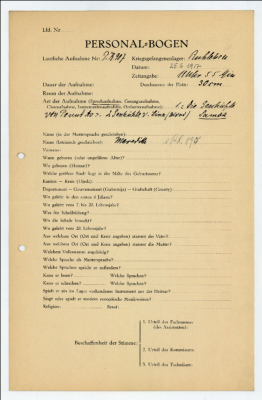 Lfd. Nr.
PERSONAL-BOGEN
Lautliche Aufnahme Nr.: Kriegsgefangenenlager:
Datum: 1917
Zeitangabe: 11 Uhr 55 Min
Dauer der Aufnahme: Durchmesser der Platte: 30cm
Raum der Aufnahme:
Art der Aufnahme (Sprechaufnahme, Gesangsaufnahme,
Choraufnahme, Instrumentenaufnahme, Orchesteraufnahme):
Name (in der Muttersprache geschrieben):
Name (lateinisch geschrieben):
Vorname:
Wann geboren (oder ungefähres Alter)?
Wo geboren (Heimat)?
Welche größere Stadt liegt in der Nähe des Geburtsortes?
Kanton — Kreis (Ujedz):
Departement — Gouvernement (Gubernija) — Grafschaft (County):
Wo gelebt in den ersten 6 Jahren?
Wo gelebt vom 7. bis 20. Lebensjahr?
Was für Schulbildung?
Wo die Schule besucht?
Wo gelebt vom 20. Lebensjahr?
Aus welchem Ort (Ort und Kreis angeben) stammt der Vater?
Aus welchem Ort (Ort und Kreis angeben) stammt die Mutter?
Welchem Volksstamm angehörig?
Welche Sprache als Muttersprache?
Welche Sprachen spricht er außerdem?
Kann er lesen? Welche Sprachen?
Kann er schreiben? Welche Sprachen?
Spielt er ein im Lager vorhandenes Instrument aus der Heimat?
Singt oder spielt er modern europäische Musikweisen?
Religion: Beruf:
Beschaffenheit der Stimme:
1. Urteil des Fachmannes
(des Assistenten):
2. Urteil des Kommissars:
3. Urteil des Technikers: